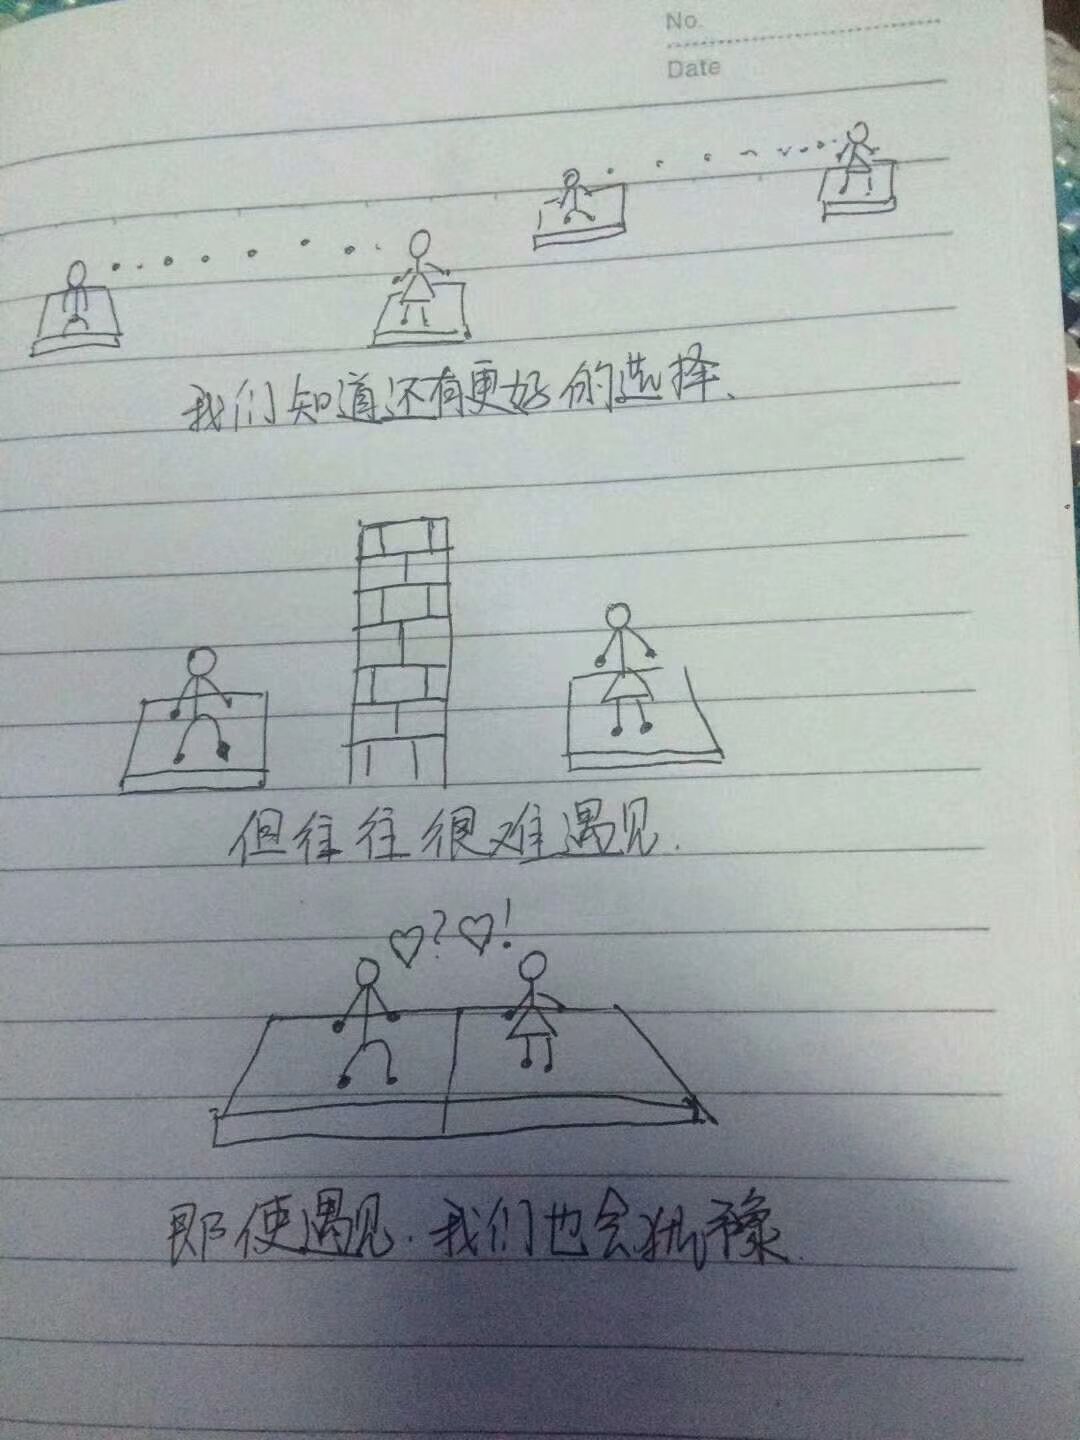 No.
Date
我们知道还有更好的选择、
但往往很难遇见.
♡?♡!
即使遇见.我们也会犹豫.